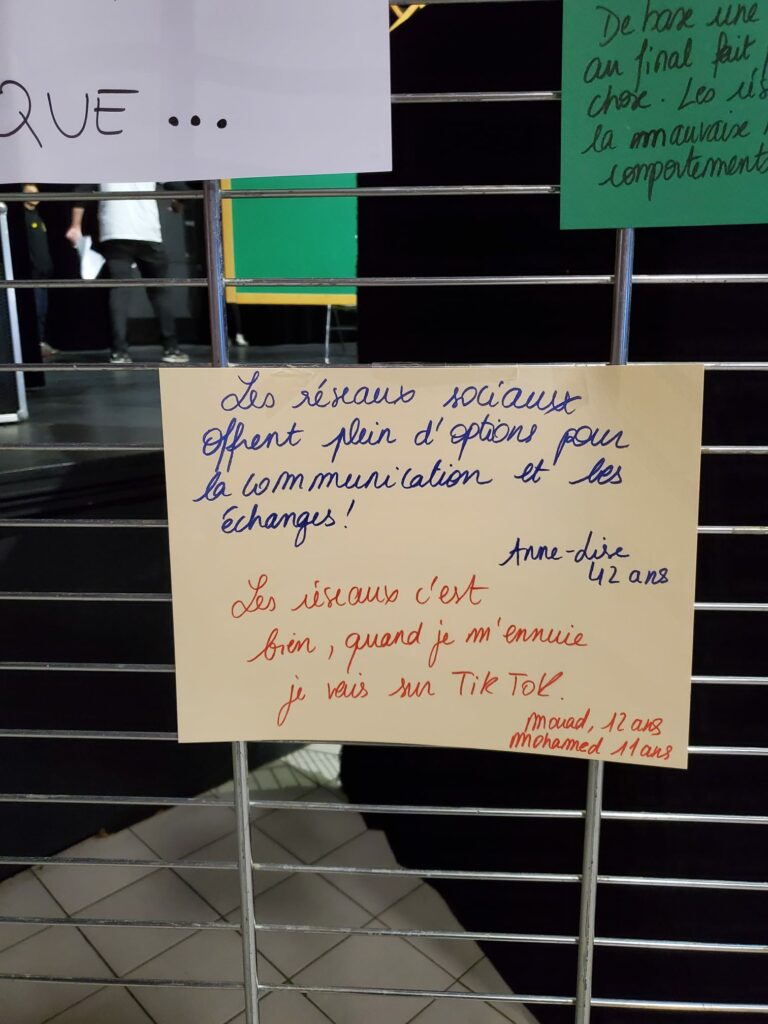 QUE ...
De base une
au final fait
chose. Les
la mauvaise
comportements
Les réseaux sociaux
offrent plein d'options pour
la communication et les
échanges!
Anne-Lise
42 ans
Les réseaux c'est
bien, quand je m'ennuie
je vais sur TikTok.
Mouad, 12 ans
Mohamed 11 ans